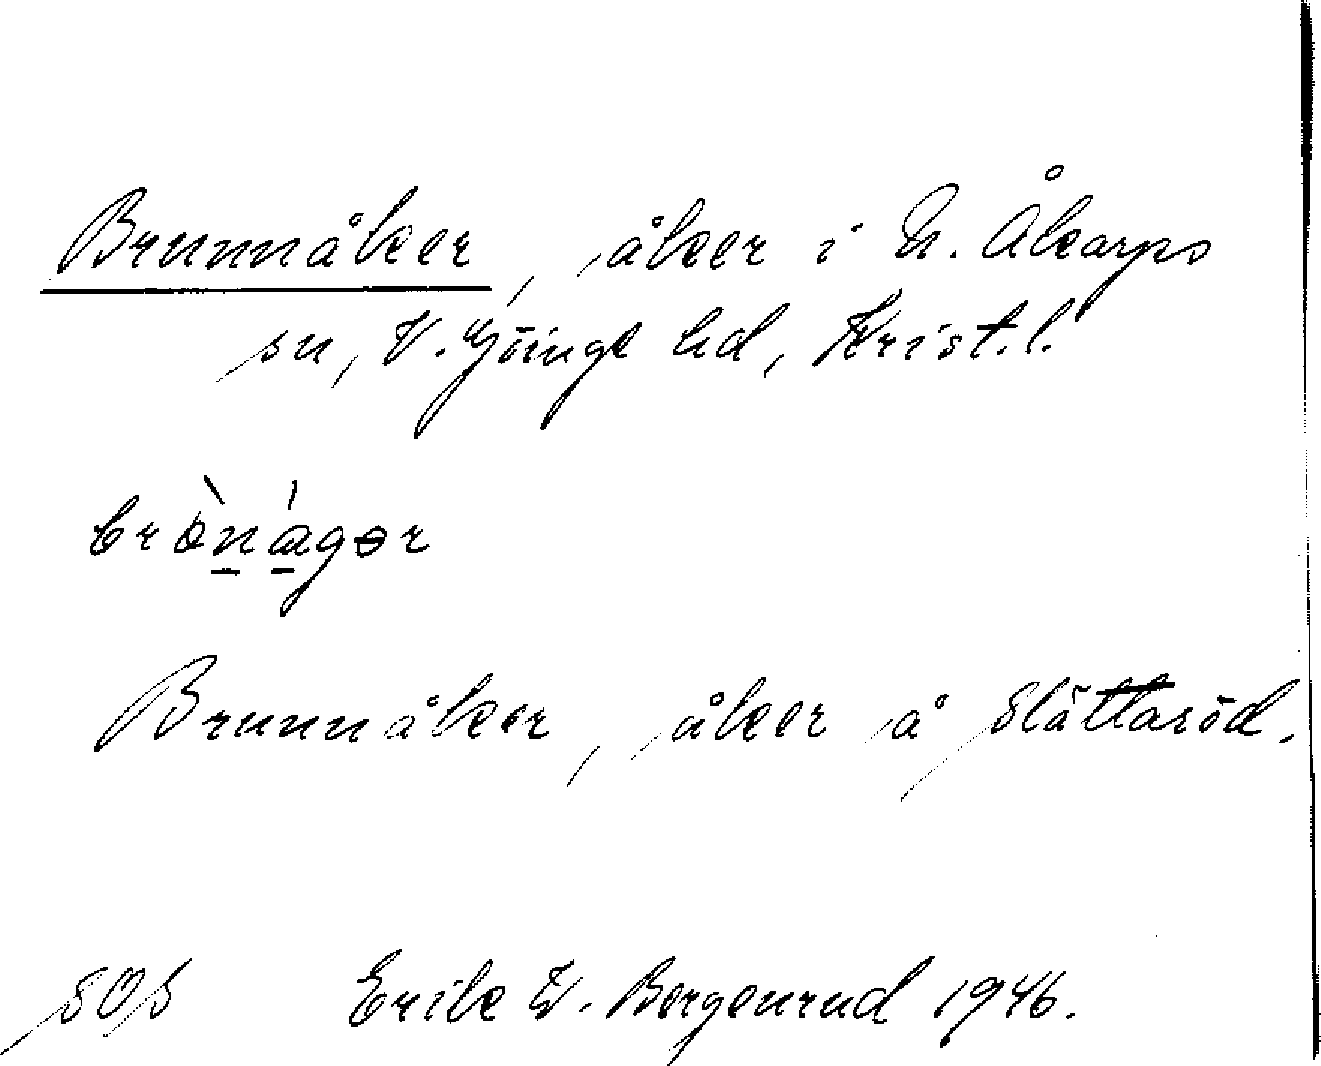 Brunnåker, åker i N. Åkarps
sn, V. Göinge hd, Krist.l.
brònágər
Brunnåker, åker å Slättaröd.
SOS Erik W. Bergenrud 1946.